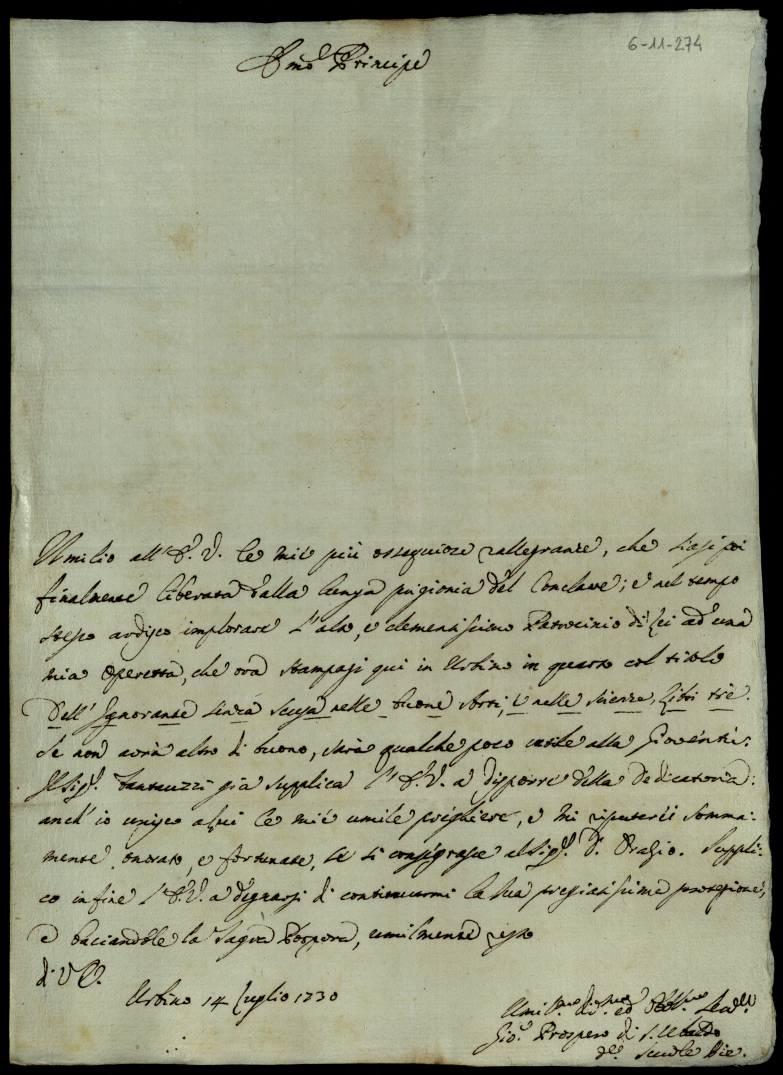 6-11-274
Emo Principe
Umilio all'E. V. le mie più ossequiose rallegranze, che siasi poi
finalmente liberata dalla lunga prigionia del Conclave; e nel tempo
stesso ardisco implorare l'alto, e clementissimo Patrocinio di Lei ad una
mia operetta, che ora stampasi qui in Urbino in quarto col titolo
Dell'Ignorante senza scusa nelle buone Arti, e nelle scienze, Libri tre.
Se non avrà altro di buono, sarà qualche poco utile alla Gioventù.
Il Sig.r Fantauzzi già supplica l'E. V. a disporre della dedicatoria:
anch'io unisco a lui le mie umile preghiere, e mi reputerei somma-
mente onorato, e fortunato, se si consegrasse al Sig.r D. Orazio. Suppli-
co in fine l'E. V. a degnarsi di continuarmi la sua pregiatissima protezione,
e baciandole la Sagra Porpora, umilmente resto
di V. E.
Urbino 14 Luglio 1730
Umil.mo div.mo ed Obb.mo
Gio. Prospero di S. Ubaldo
delle Scuole Pie.